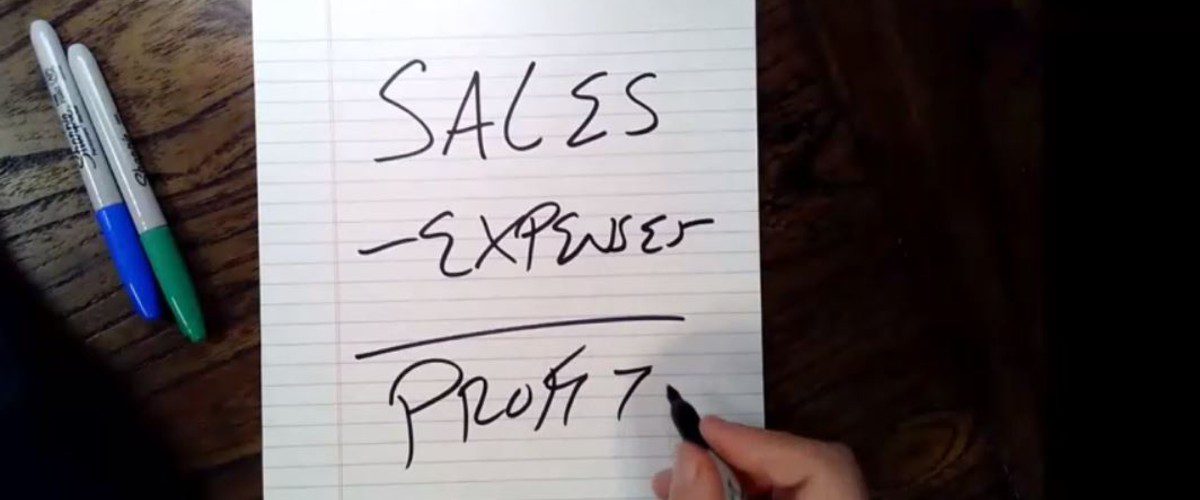 SALES
- EXPENSES
PROFIT
Sharpie
Sharpie